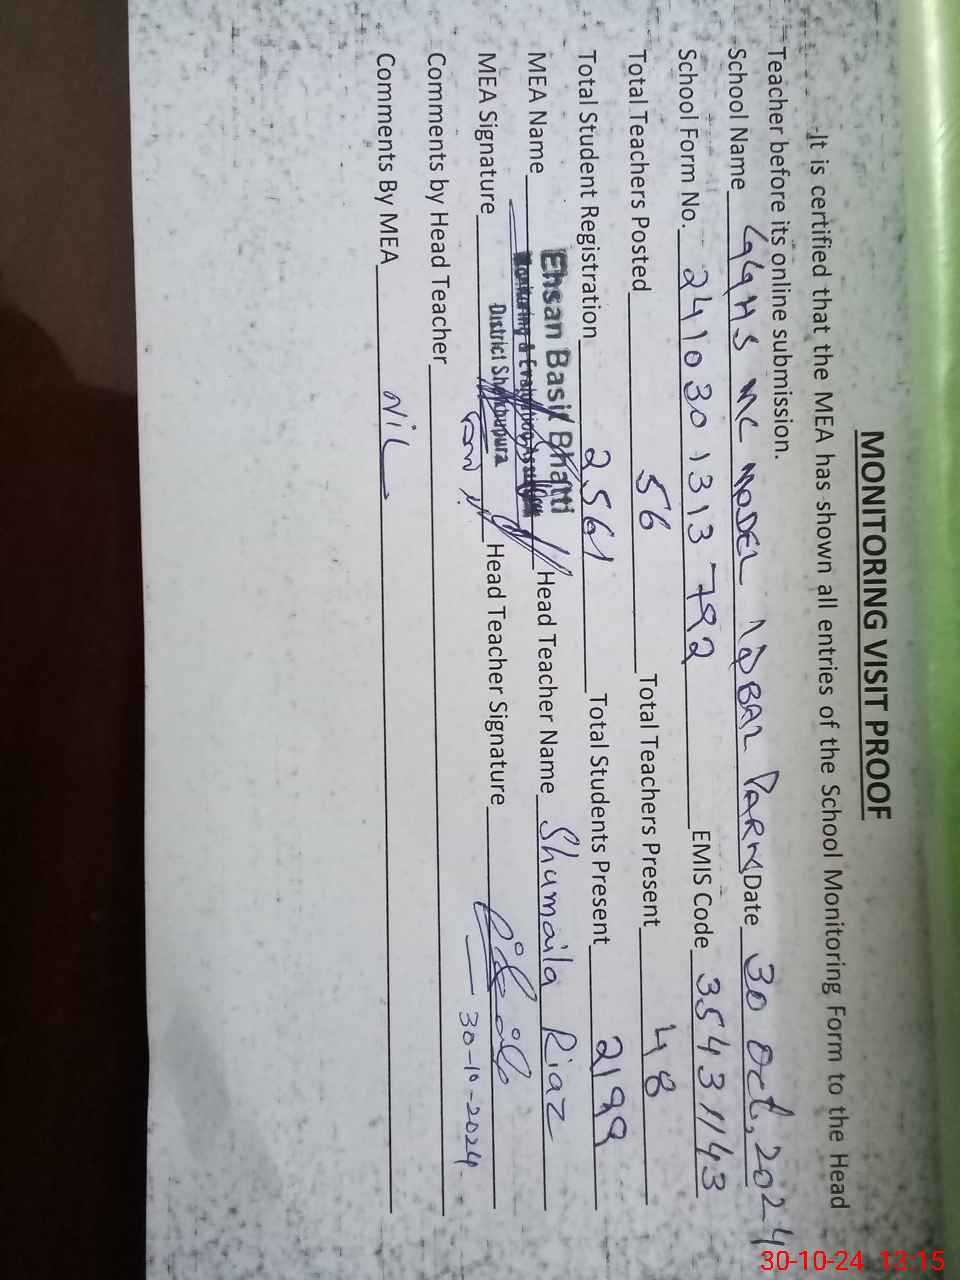 MONITORING VISIT PROOF
It is certified that the MEA has shown all entries of the School Monitoring Form to the Head
Teacher before its online submission.
School Name GGHS MC MODEL IQBAL PARK Date 30 Oct, 2024
School Form No. 2410301313792 EMIS Code 35431143
Total Teachers Posted 56 Total Teachers Present 48
Total Student Registration 2561 Total Students Present 2199
MEA Name Ehsan Basil Bhatti Head Teacher Name Shumaila Riaz
Monitoring & Evaluation
District Sheikhupura
MEA Signature Head Teacher Signature
30-10-2024
Comments by Head Teacher
Comments By MEA NIL
30-10-24 13:15